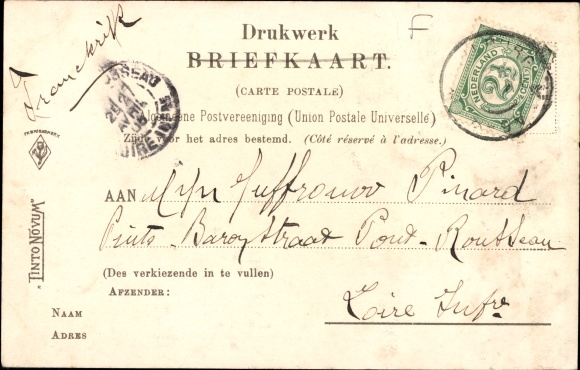 Drukwerk
BRIEFKAART.
(CARTE POSTALE)
Algemeene Postvereeniging (Union Postale Universelle)
Zijde voor het adres bestemd. (Côté réservé à l'adresse.)
Franckrijk
F
NEDERLAND
2½
AAN Mejn Juffrouw Pinard
Puits-Baron Straat Pont-Rousseau
Loire Infre
(Des verkiezende in te vullen)
AFZENDER:
NAAM
ADRES
„TINTO NOVUM"